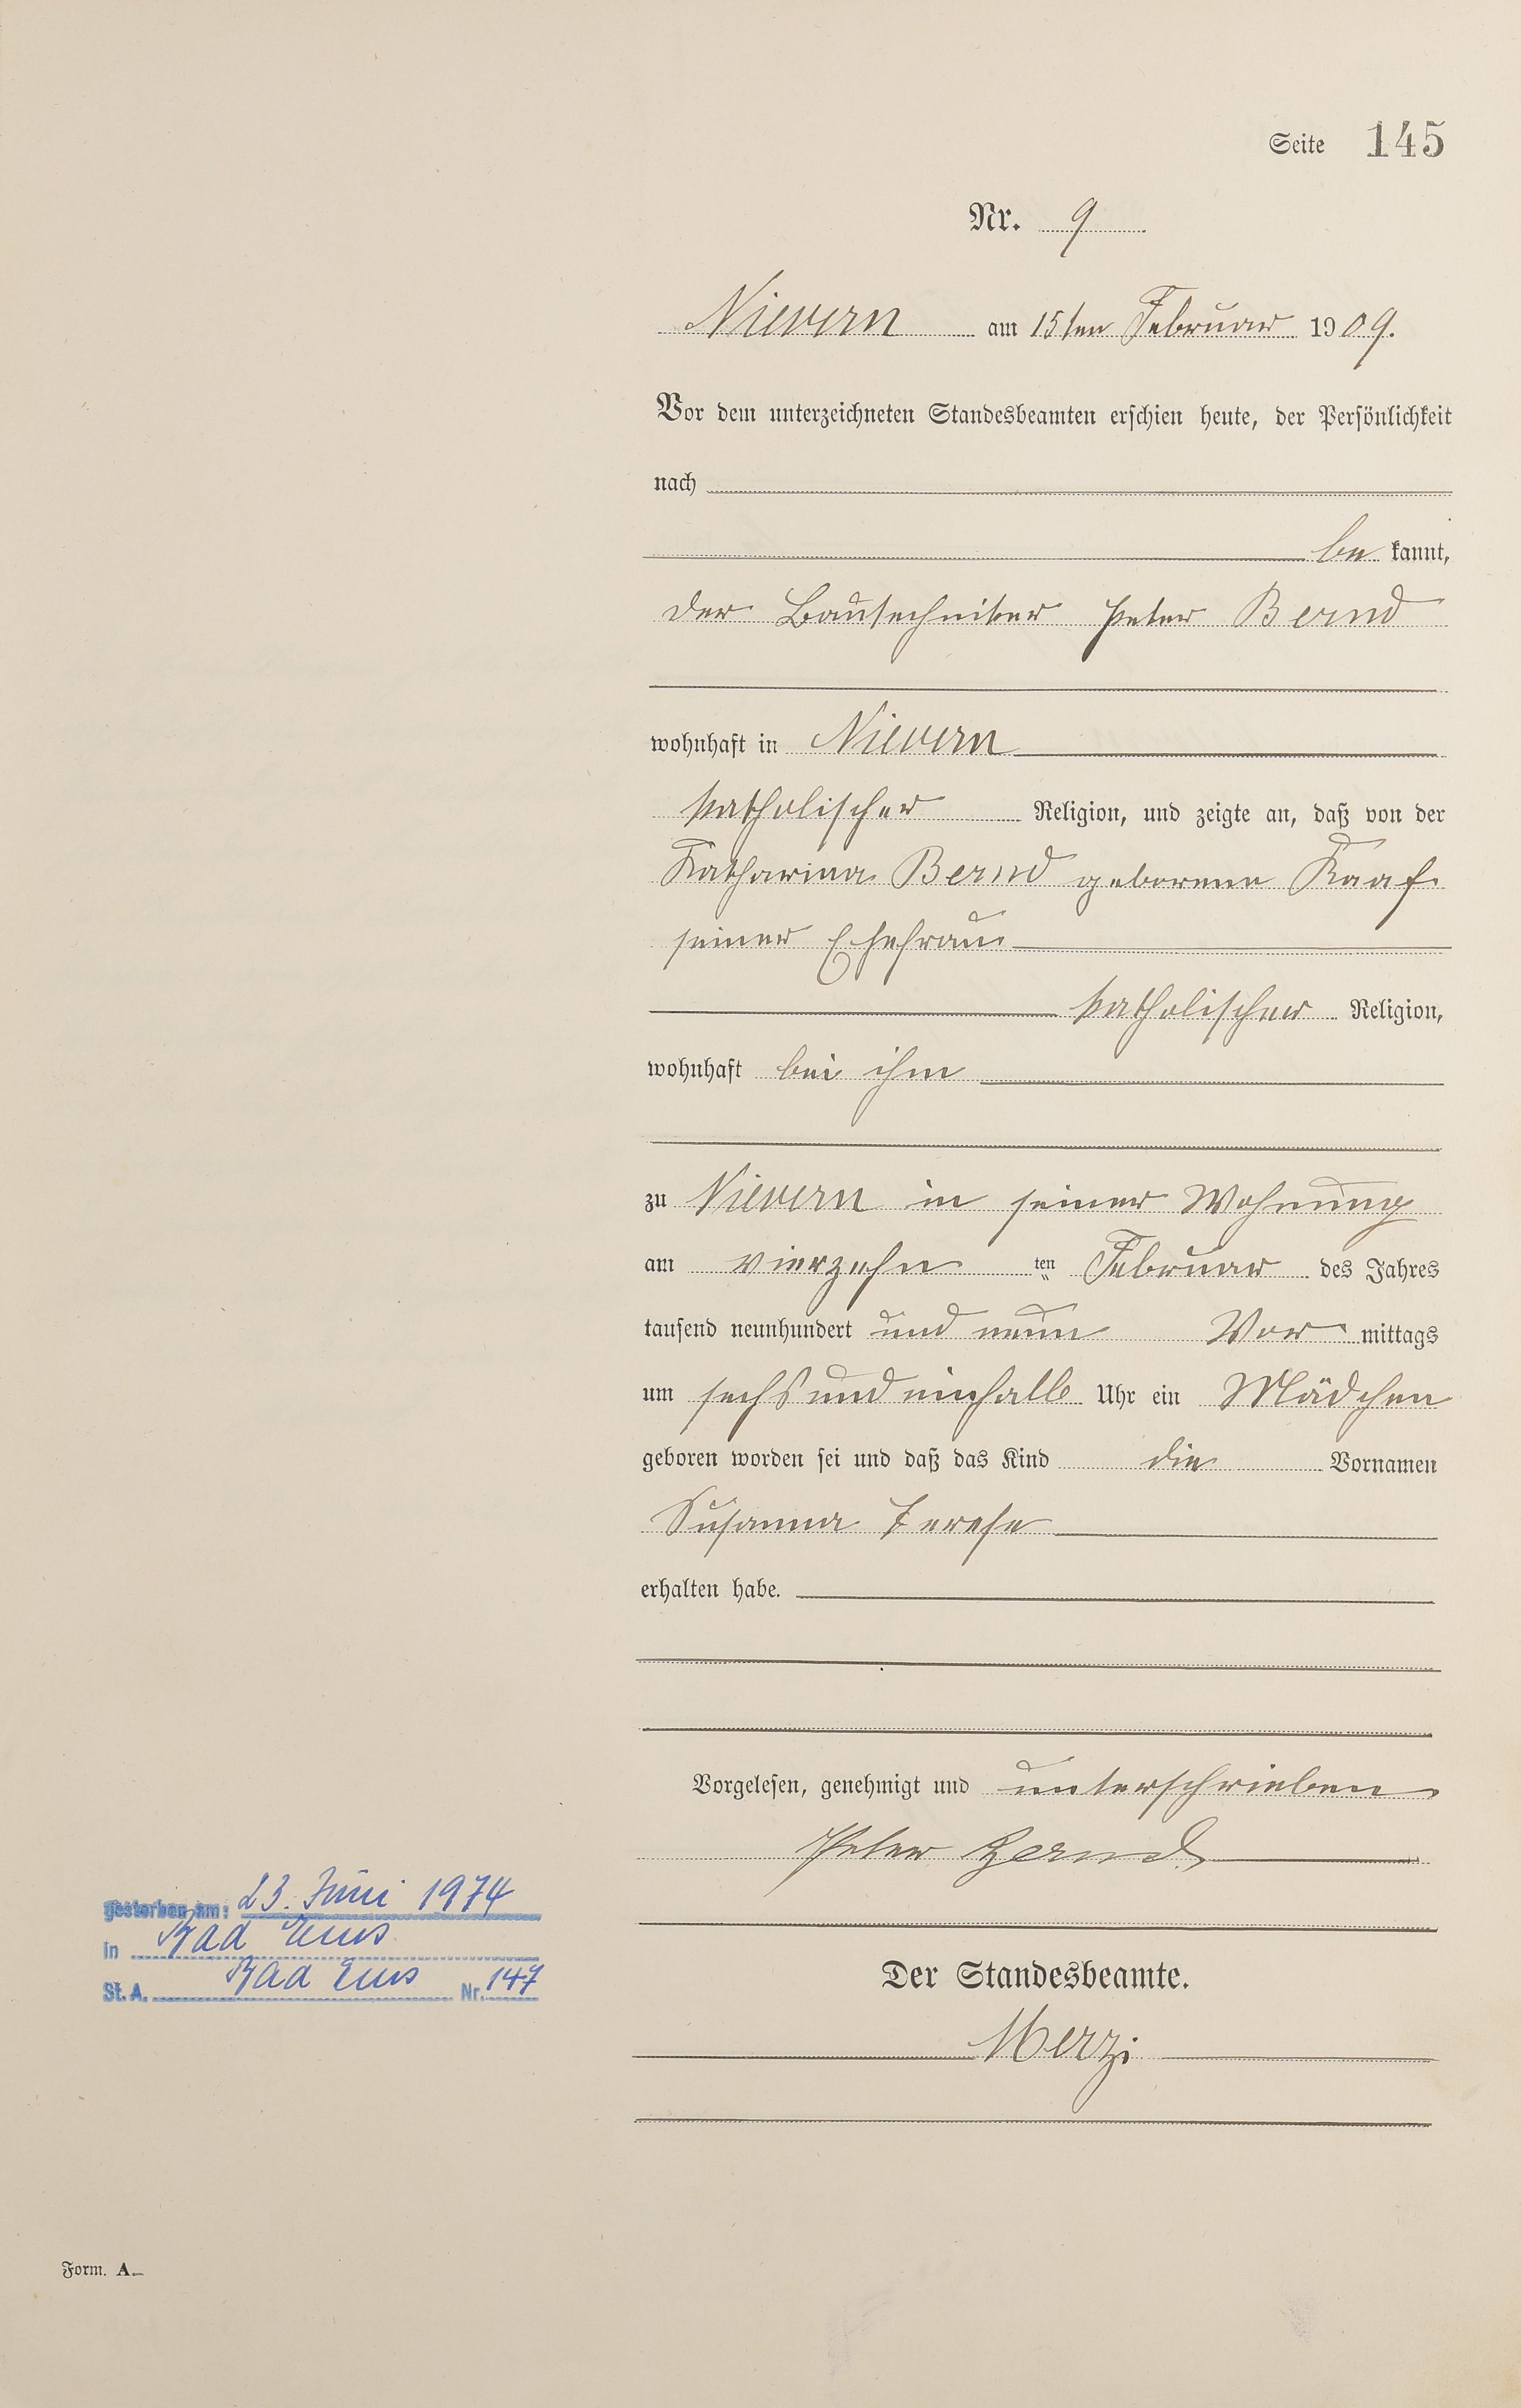 Seite 145
Nr. 9
Nievern am 15ten Februar 1909.
Vor dem unterzeichneten Standesbeamten erschien heute, der Persönlichkeit
nach
be kannt,
der Bautechniker Peter Bernd
wohnhaft in Nievern
katholischer Religion, und zeigte an, daß von der
Katharina Bernd geborenen Kaaf
seiner Ehefrau
katholischer Religion,
wohnhaft bei ihm
zu Nievern in seiner Wohnung
am vierzehn ten Februar des Jahres
tausend neunhundert und neun Vor mittags
um sechs und einhalb Uhr ein Mädchen
geboren worden sei und daß das Kind die Vornamen
Susanna Terese
erhalten habe.
Vorgelesen, genehmigt und unterschrieben
Peter Bernd
gestorben am: 23. Juni 1974
in Bad Ems
St. A. Bad Ems Nr. 147
Der Standesbeamte.
Merzi
Form. A.